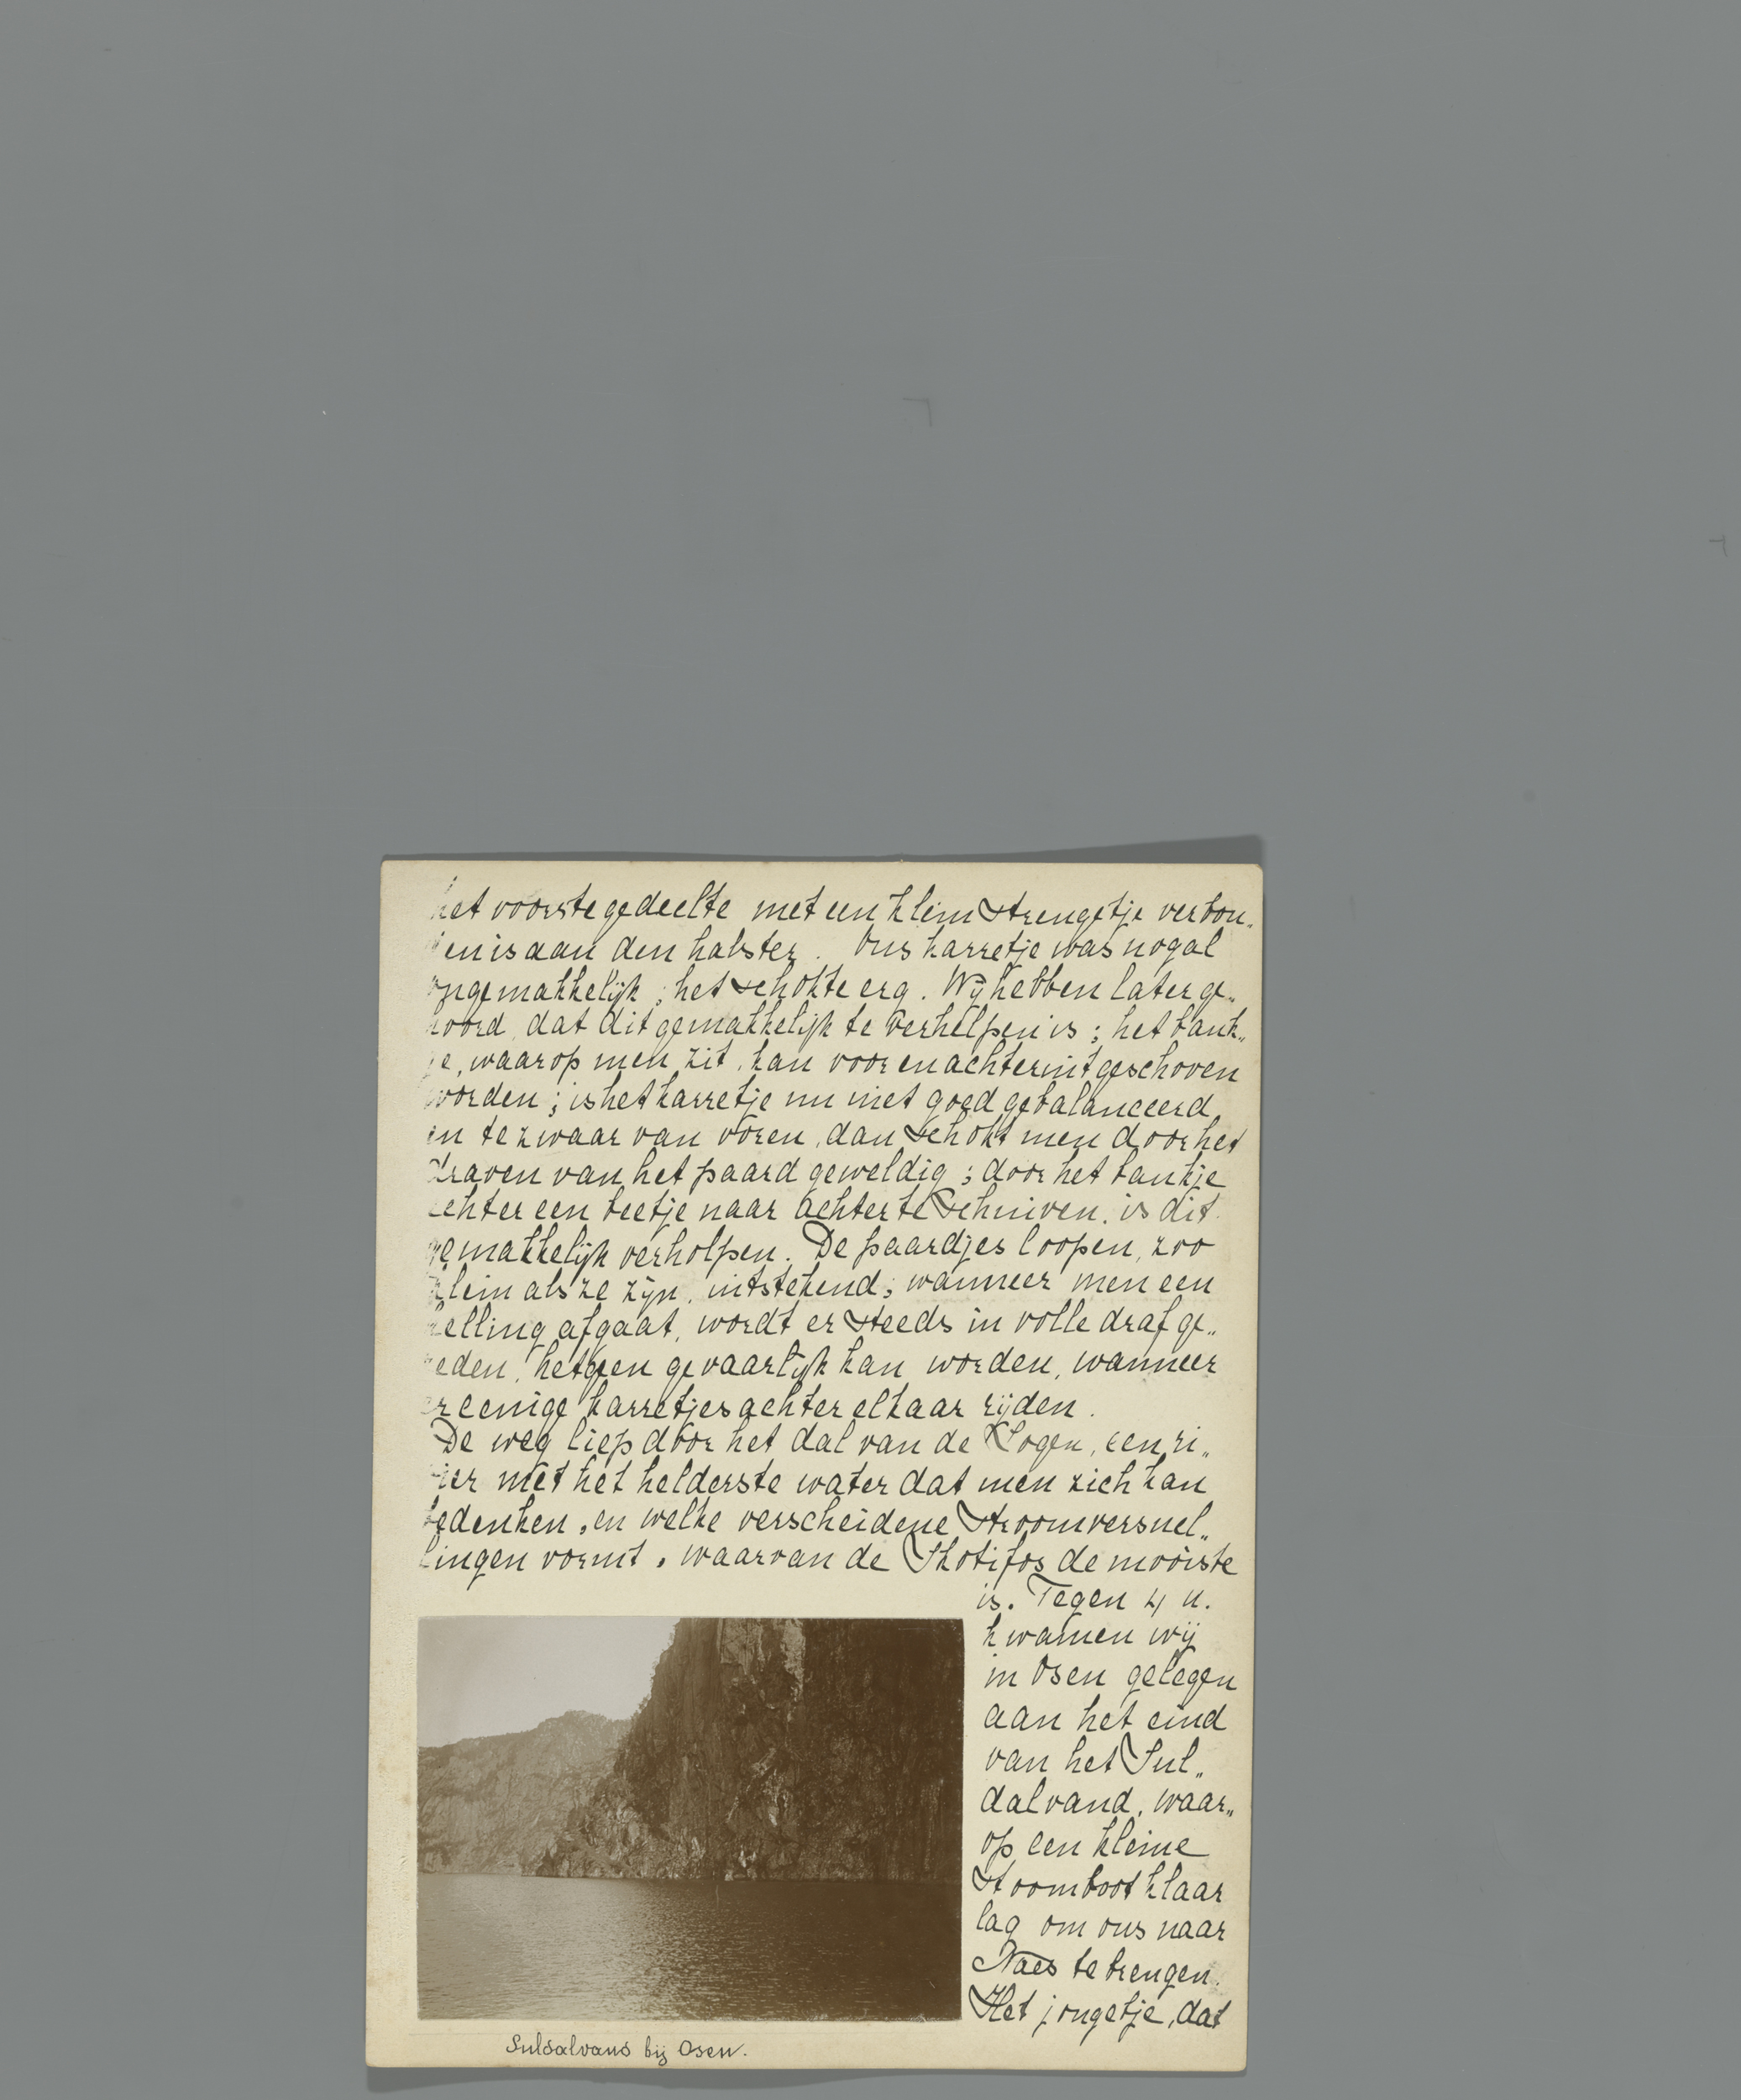 het voorste gedeelte met een klein strengetje verbon„
en is aan den halster. Ons karretje was nogal
ongemakkelijk; het schokte erg. Wij hebben later ge„
hoord, dat dit gemakkelijk te verhelpen is; het bank„
je, waarop men zit, kan voor en achteruit geschoven
worden; is het karretje nu niet goed gebalanceerd,
en te zwaar van voren, dan schokt men door het
draven van het paard geweldig; door het bankje
echter een beetje naar achter te schuiven, is dit
gemakkelijk verholpen. De paardjes loopen, zoo
klein als ze zijn, uitstekend; wanneer men een
helling afgaat, wordt er steeds in volle draf ge„
reden, hetgeen gevaarlijk kan worden, wanneer
er eenige karretjes achter elkaar rijden.
De weg liep door het dal van de Logen, een ri„
vier met het helderste water dat men zich kan
bedenken, en welke verscheidene stroomversnel„
lingen vormt, waarvan de Skotifos de mooiste
is. Tegen 4 u.
kwamen wij
in Osen gelegen
aan het eind
van het Sul„
dalvand, waar„
op een kleine
stoomboot klaar
lag om ons naar
Naes te brengen.
Het jongetje, dat
Suldalvand bij Osen.